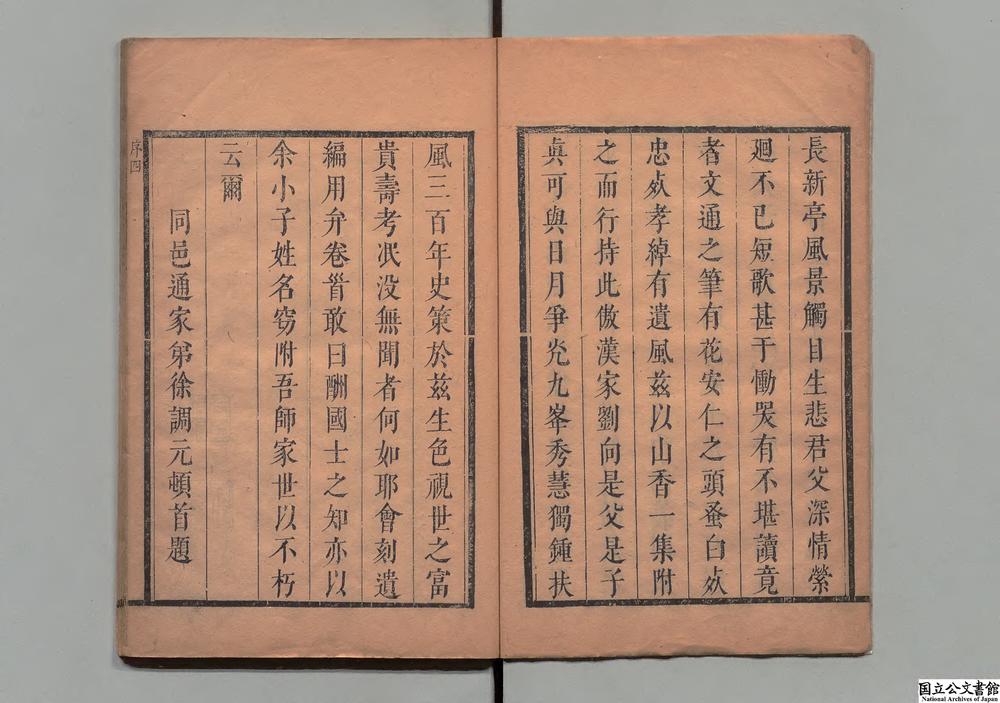 長新亭風景觸目生悲君父深情縈
廻不已短歌甚于慟哭有不堪讀竟
者文通之筆有花安仁之頭蚤白㱠
忠㱠孝綽有遺風玆以山香一集附
之而行持此傲漢家劉向是父是子
眞可與日月爭光九峯秀慧獨鍾扶
風三百年史策於玆生色視世之富
貴壽考泯没無聞者何如耶會刻遺
編用弁卷首敢曰酬國士之知亦以
余小子姓名窃附吾師家世以不朽
云爾
同邑通家弟徐調元頓首題
序四
国立公文書館
National Archives of Japan